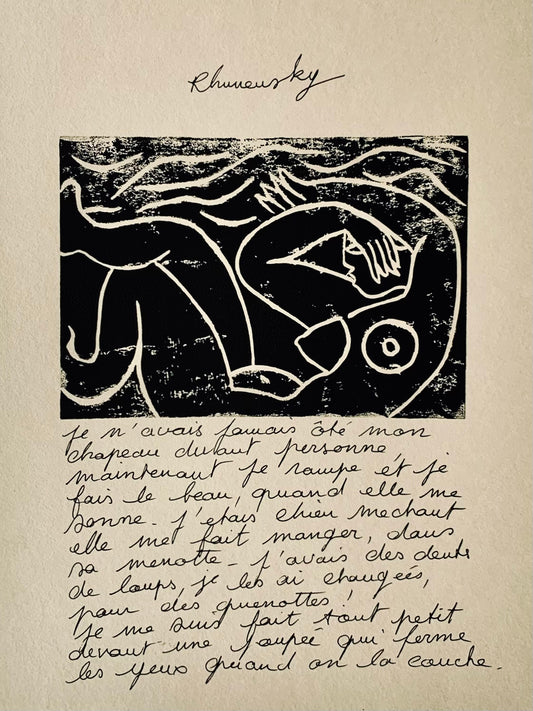 Rhuneusky
je n'avais jamais ôté mon
chapeau devant personne,
maintenant je rampe et je
fais le beau, quand elle me
sonne. j'etais chien mechant
elle me fait manger, dans
sa menotte. j'avais des dents
de loups, je les ai changées,
pour des quenottes !
je me suis fait tout petit
devant une poupée qui ferme
les yeux quand on la couche.